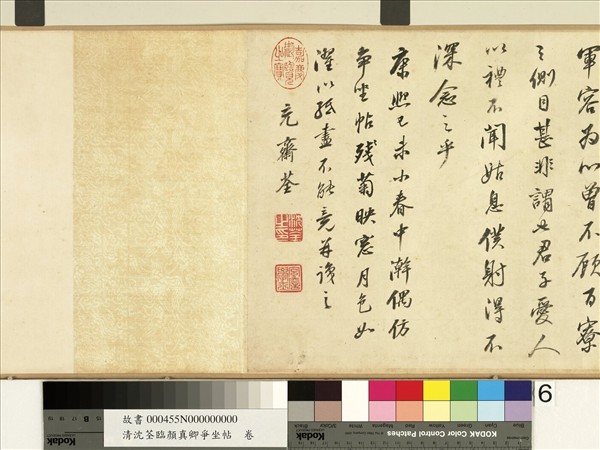 軍容為心曾不顧百寮
之側目甚非謂也君子愛人
以禮不聞姑息僕射得不
深念之乎
康熙己未小春中澣偶仿
爭坐帖殘菊映窗月色如
濯以紙盡不能竟并識之
充齋荃
嘉慶御覽之寶
故書 000455N000000000
清沈荃臨顏真卿爭坐帖 卷
Kodak
KODAK Color Control Patches
Blue Cyan Green Yellow Red Magenta White 3/Color Black
6